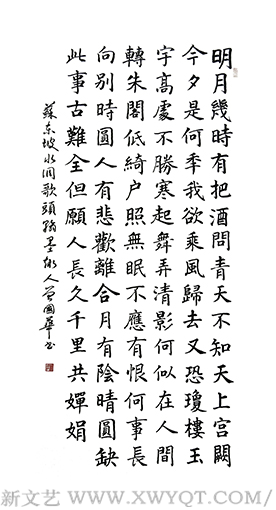 明月幾時有把酒問青天不知天上宮闕
今夕是何年我欲乘風歸去又恐瓊樓玉
宇高處不勝寒起舞弄清影何似在人間
轉朱閣低綺户照無眠不應有恨何事長
向別時圓人有悲歡離合月有陰晴圓缺
此事古難全但願人長久千里共嬋娟
蘇東坡水調歌頭翰墨人國華書
新文艺 / WWW.XWYQT.COM/